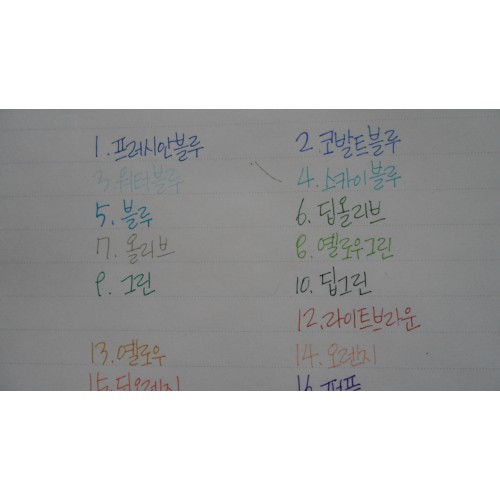 1. 프러시안블루 2. 코발트블루
3. 워터블루 4. 스카이블루
5. 블루 6. 딥올리브
7. 올리브 8. 옐로우그린
9. 그린 10. 딥그린
12. 라이트브라운
13. 옐로우 14. 오렌지
15. 딥오렌지 16. 퍼플